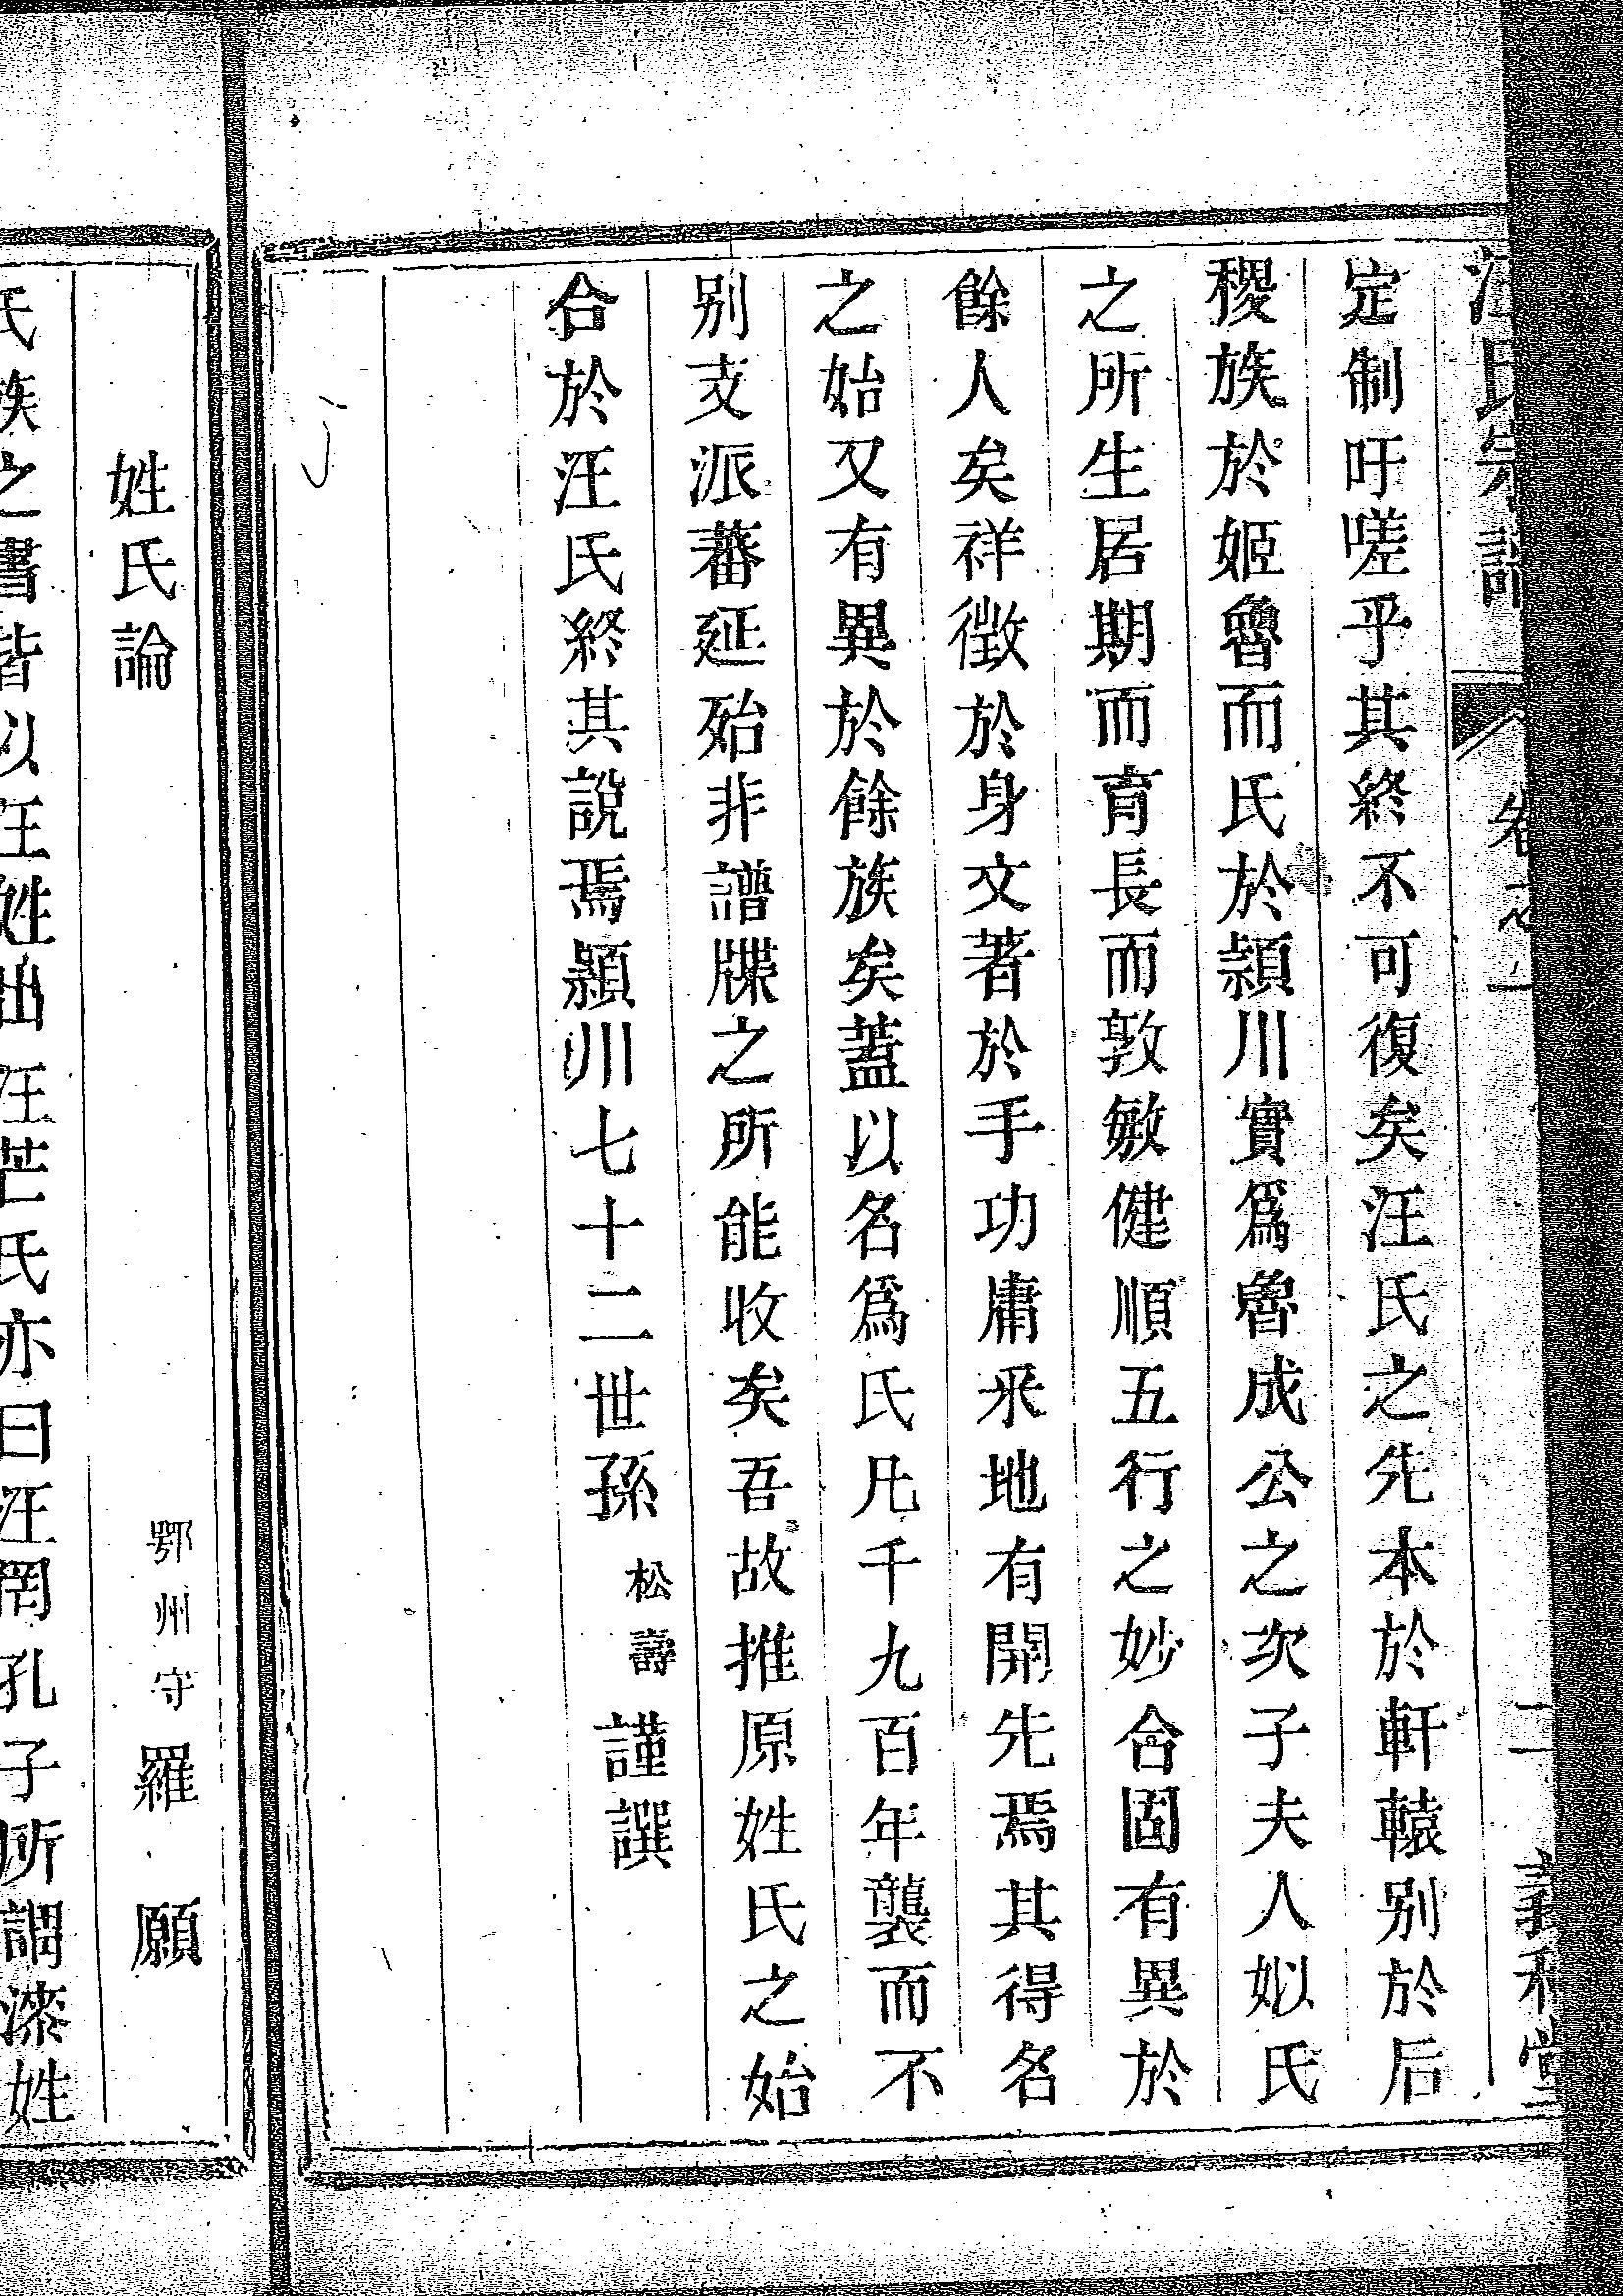 汪氏宗譜 卷之一 二 義和堂
定制吁嗟乎其終不可復矣汪氏之先本於軒轅别於后
稷族於姬魯而氏於頴川實爲魯成公之次子夫人姒氏
之所生居期而育長而敦敏健順五行之妙合固有異於
餘人矣祥徵於身文著於手功庸釆地有開先焉其得名
之始又有異於餘族矣蓋以名爲氏凡千九百年襲而不
别支派蕃延殆非譜牒之所能收矣吾故推原姓氏之始
合於汪氏終其説焉頴川七十二世孫 松壽 謹譔
姓氏論 鄂州守 羅願
氏族之書皆以汪姓出汪芒氏亦曰汪罔孔子所謂漆姓